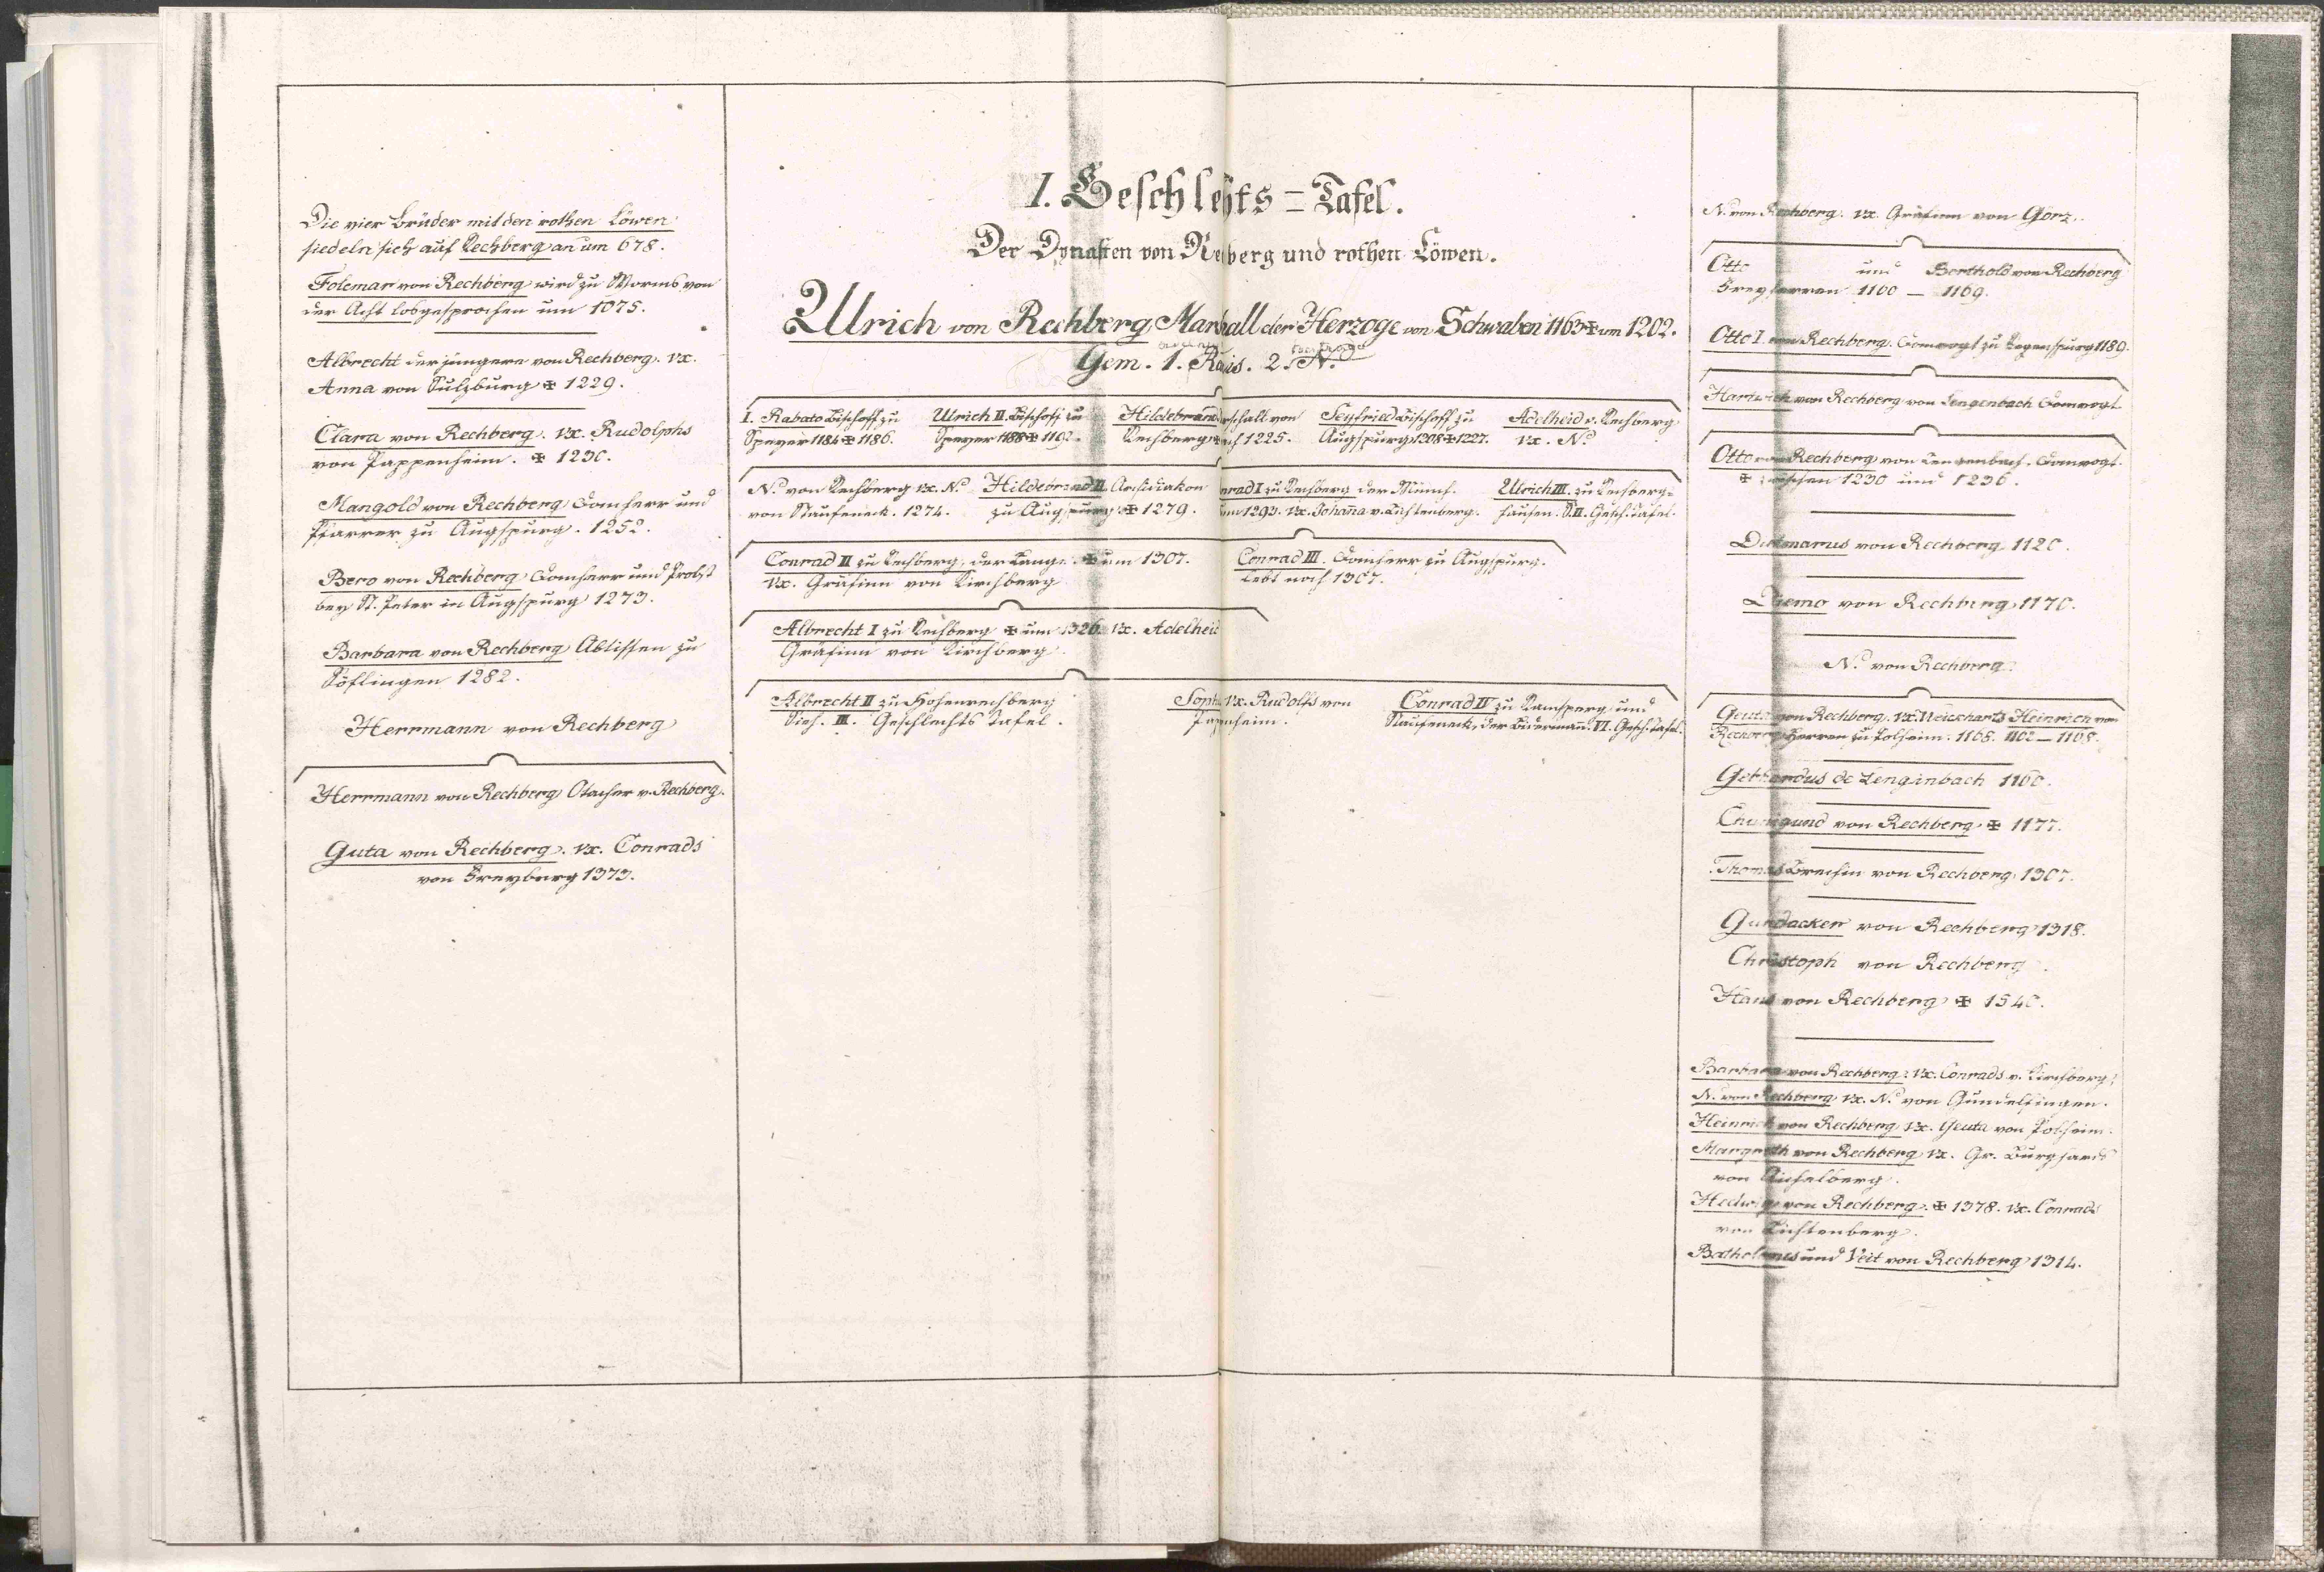 Die vier Brüder mit den rothen Löwen
siedeln sich auf Rechberg an um 678.
Folcmar von Rechberg wird zu Worms von
der Acht losgesprochen um 1075.
Albrecht der jüngere von Rechberg. vx.
Anna von Sulzburg ✠ 1229.
Clara von Rechberg. vx. Rudolphs
von Pappenheim. ✠ 1230.
Mangold von Rechberg Domherr und
Pfarrer zu Augspurg. 1252.
Bero von Rechberg Domherr und Probst
bey St. Peter in Augspurg 1273.
Barbara von Rechberg Abtissen zu
Söflingen 1282.
Herrmann von Rechberg
Herrmann von Rechberg Otacher v. Rechberg.
Guta von Rechberg. vx. Conrads
von Freyberg 1373.
I. Geschlechts-Tafel.
Der Dynasten von Rechberg und rothen Löwen.
Ulrich von Rechberg Marschall der Herzoge von Schwaben 1163 ✠ um 1202.
Gem. 1. 2. N.
I. Rabato Bischoff zu Ulrich II. Bischoff zu Hildebrand Marschall von Seyfried Bischoff zu Adelheid v. Rechberg
Speyer 1184 ✠ 1186. Speyer 1188 ✠ 1192. Rechberg 1225. Augspurg 1208 ✠ 1227. vx. N.
N. von Rechberg vx. N. Hildebrand II. Archidiakon Conrad I zu Rechberg der Ulrich III. zu Rechberg-
von Staufeneck. 1274. zu Augspurg ✠ 1279. um 1293. vx. Johanna v. Lichtenberg. hausen. S. II. Gesch. Tafel.
Conrad II zu Rechberg, der Lange. ✠ um 1307. Conrad III. Domherr zu Augspurg.
vx. Gräfinn von Kirchberg lebt noch 1307.
Albrecht I zu Rechberg ✠ um 1326. vx. Adelheid
Gräfinn von Kirchberg.
Albrecht II zu Hohenrechberg Sophia vx. Rudolfs von Conrad IV zu Ramsperg und
Sieh. III. Geschlechts Tafel. Pappenheim. Staufeneck, der Biderman. VI. Gesch. Tafel.
N. von Rechberg. vx. Gräfinn von Görz.
Otto und Berthold von Rechberg
Freyherren 1160 — 1169.
Otto I. von Rechberg. Domvogt zu Regenspurg 1189.
Hartwich von Rechberg von Lengenbach Domvogt.
Otto von Rechberg von Lengenbach. Domvogt.
✠ zwischen 1230 und 1236.
Dietmarus von Rechberg 1120.
Diemo von Rechberg 1170.
N. von Rechberg.
Geuta von Rechberg. vx. Weickharts Heinrich von
Rechberg Herren zu Polheim. 1168. 1162 — 1168.
Gebhardus de Lenginbach 1160.
Chunigund von Rechberg ✠ 1177.
Thomas von Rechberg 1307.
Gundacker von Rechberg 1318.
Christoph von Rechberg.
Hans von Rechberg ✠ 1540.
Barbara von Rechberg. vx. Conrads v. Kirchberg.
N. von Rechberg vx. N. von Gundelfingen.
Heinrich von Rechberg vx. Geuta von Polheim.
Margreth von Rechberg vx. Gr. Burghards
von Aichelberg.
Hedwig von Rechberg. ✠ 1378. vx. Conrads
von Lichtenberg.
Batholomes und Veit von Rechberg 1314.